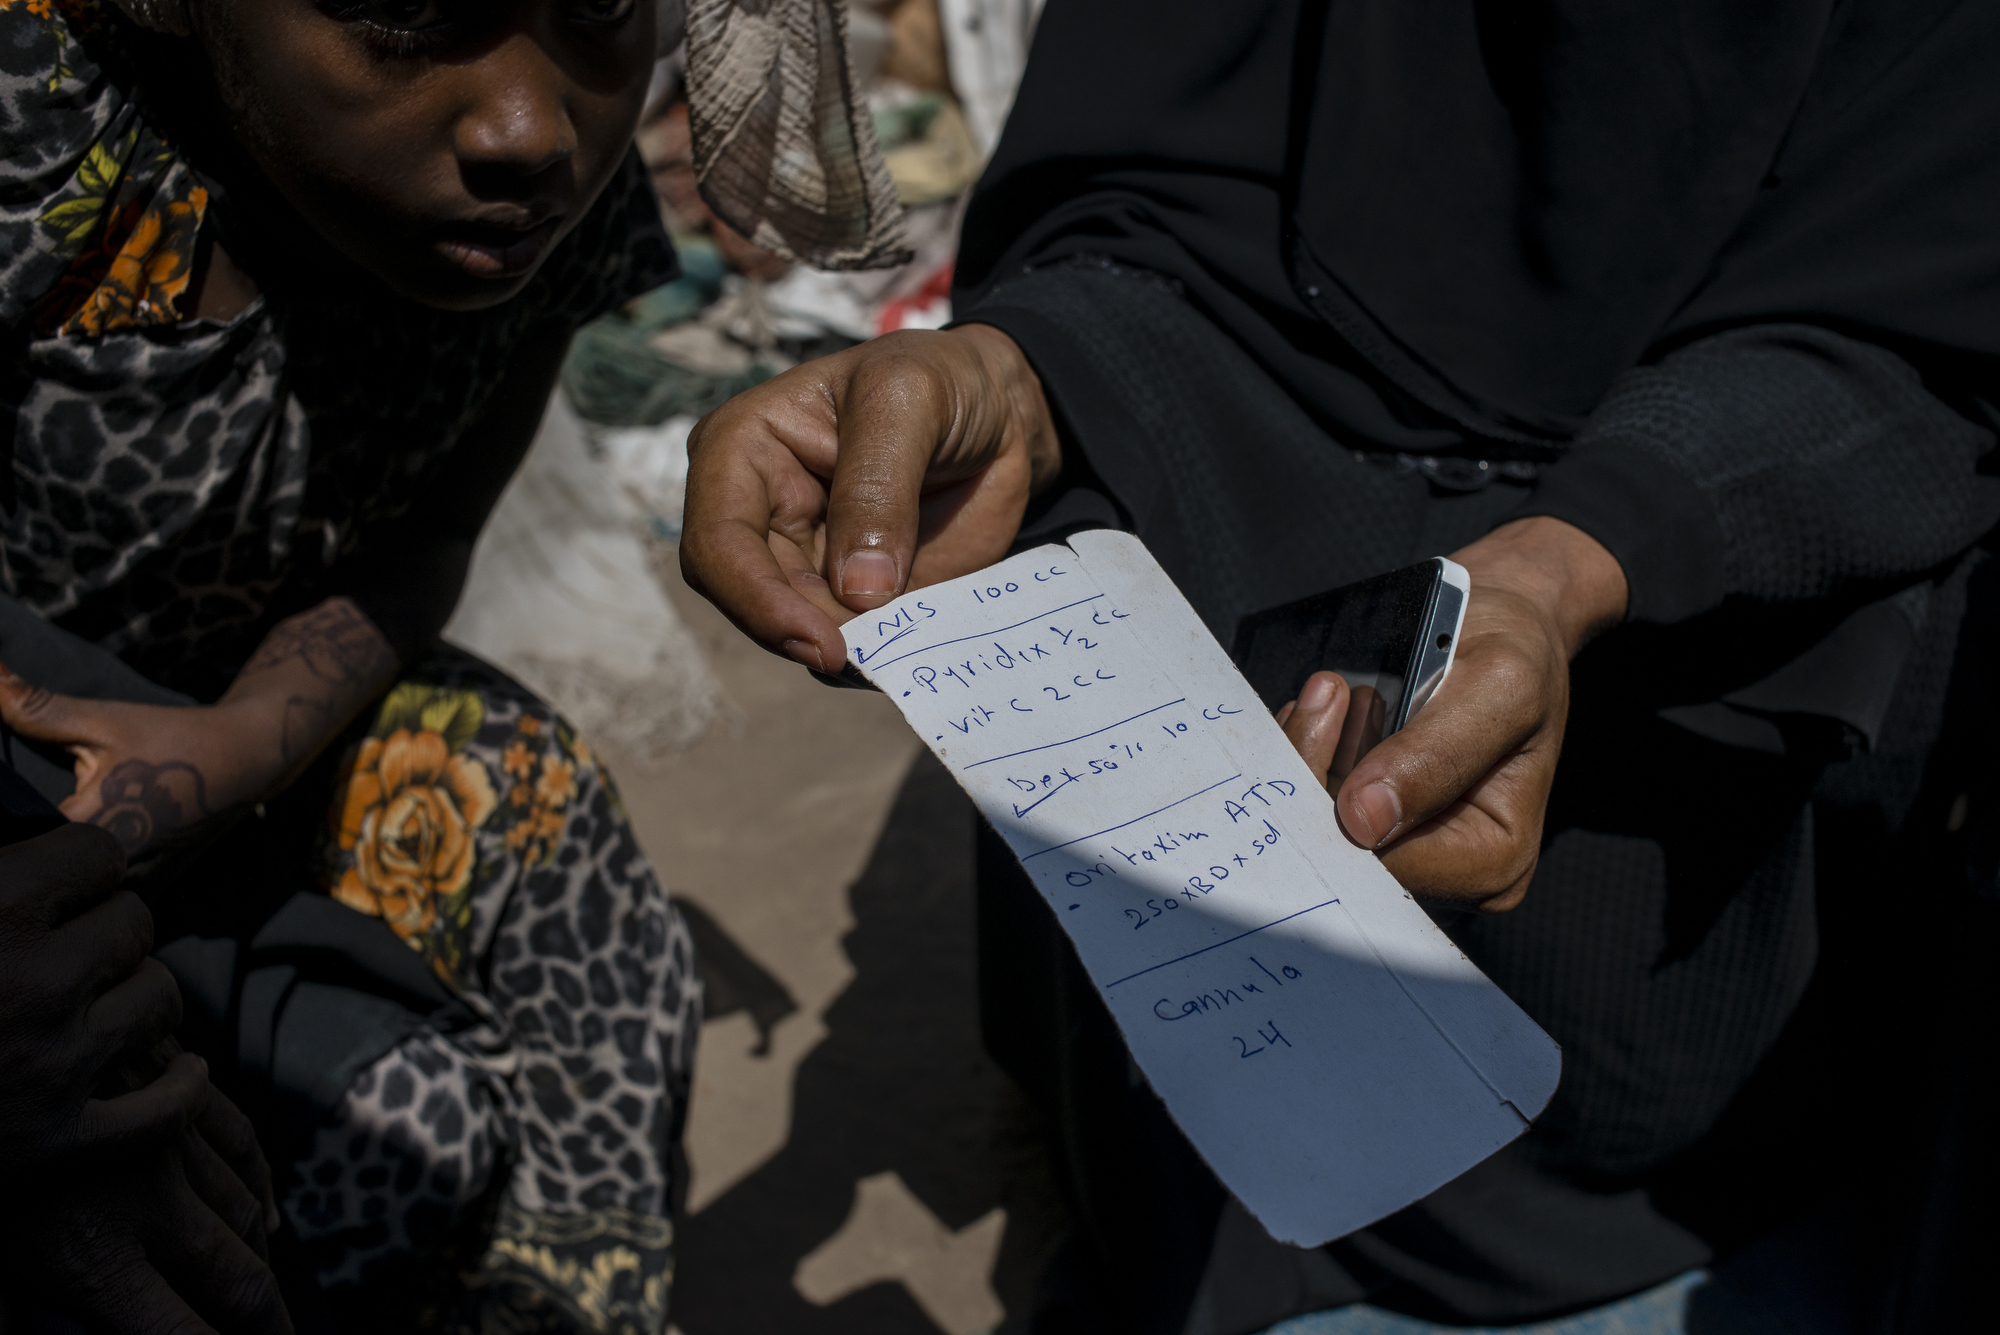 N/S 100 cc
. Pyridix ½ cc
. Vit C 2 cc
Dex 50% 10 cc
. Oritaxim ATD
250 x BD x 5d
Cannula
24